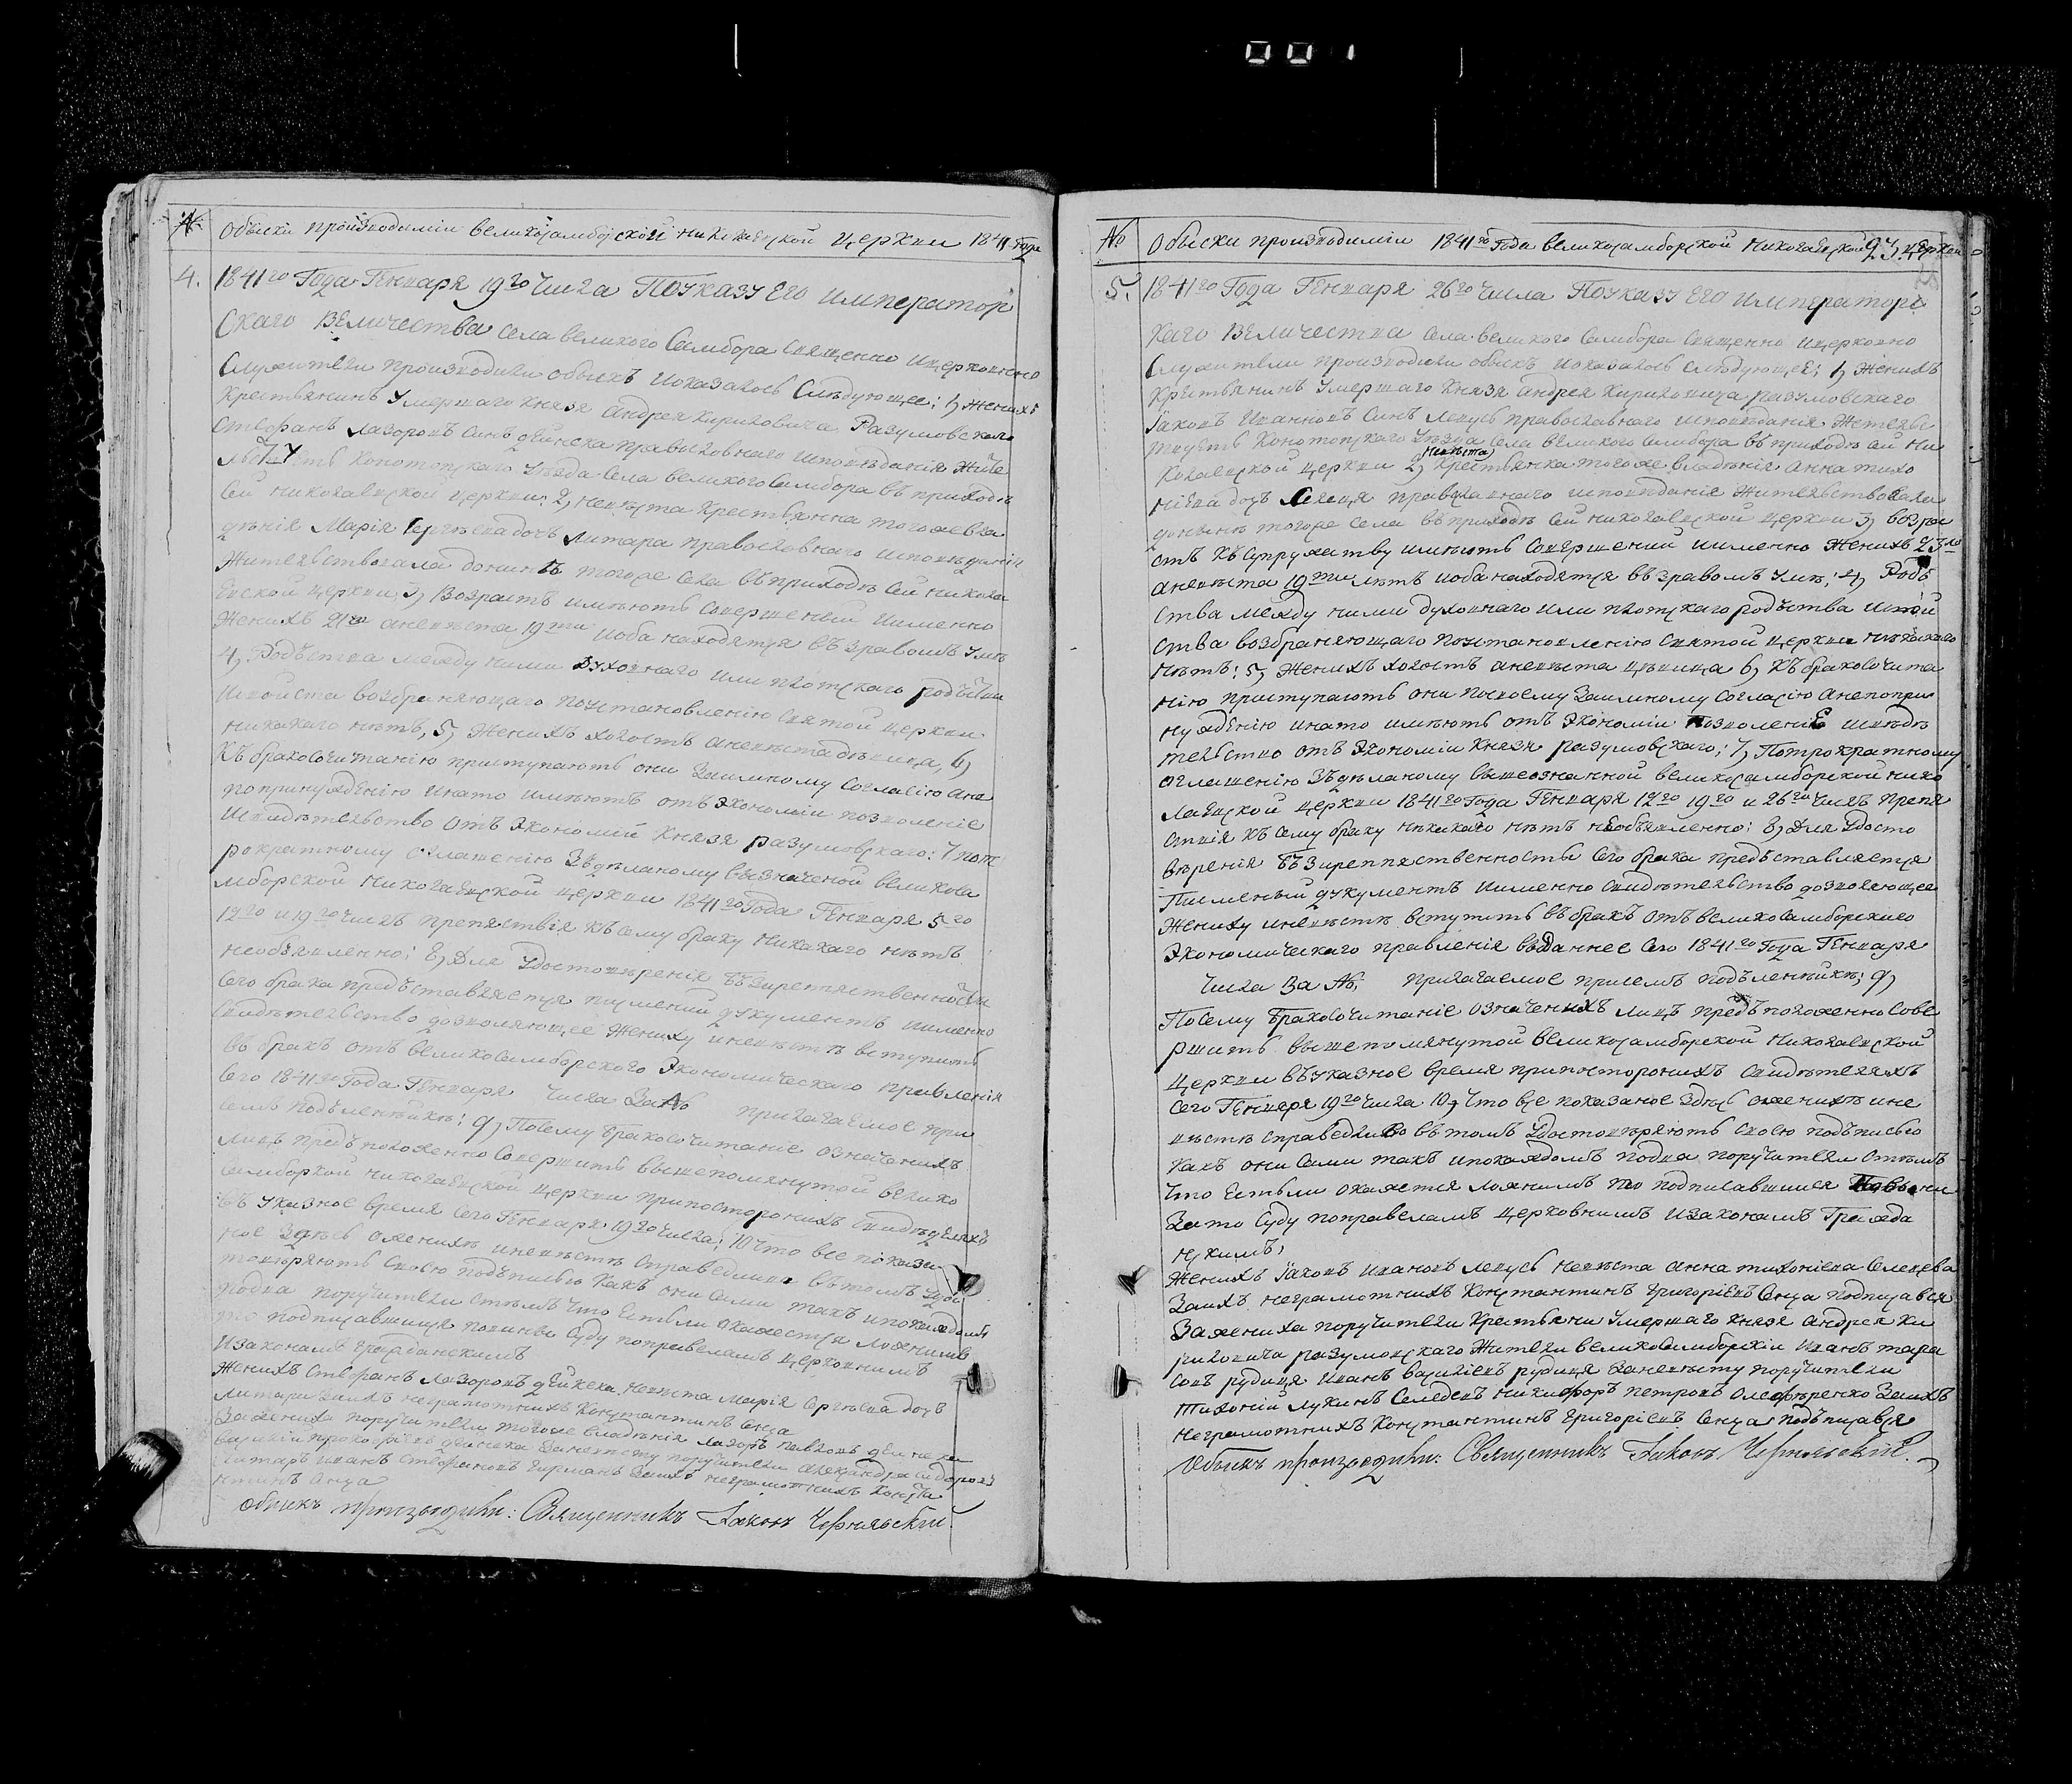 001
№ Обыски производимïи великосамборской николаевской церкви 1841 года
4. 1841го Года Генваря 19го числа ПОУКАЗУ ЕГО император
скаго ВЕличества села великого Самбора священно ицерковно
служители производили обыскъ иоказалось Слѣдующее: 1, женихъ
крестьянинъ Умершаго князя андрея кириловича Разумовскаго
стефанъ лазоровъ синъ дейнека православнаго исповѣданïя жите
льствуетъ Конотопскаго Уѣзда села великого Самбора въ приходѣ
сей николаевской церкви: 2, невѣста Крестьянка тогоже вла
дѣнïя Марïя Сергѣева дочь литара православнаго исповѣданïя
жительствовала донинѣ тогоже села въприходѣ сей никола
евской церкви, 3, Возрастъ имѣютъ Совершеный иименно
женихъ 21го аневѣста 19ти иоба находятся въздравомъ умѣ
4, Родъства между ними духовнаго или плотскаго родъства
исвойста возбраняющаго поустановленïю святой церкви
никакаго нѣтъ, 5, Женихъ холостъ аневѣста дѣвица, 6,
Къ бракосочитанïю приступаютъ они Заимному согласïю ане
попринужденïю инато имѣютъ отъ экономïи позволенïе
исвидѣтельство отъ экономïй Князя разумовскаго: 7 пот
рократному оглашенïю Здѣланому въозначеной великоса
мборской николаевской церкви 1841го Года Генваря 5го
12го и19го числъ препятствïя къ сему браку никакаго нѣтъ
необъявленно: 8, Для Удостовѣренïя бѣзпрепятственности
сего брака предъставляется писменый дукументъ иименно
свидѣтельство дозволяющее жениху иневѣстѣ вступить
въ бракъ отъ великосамборского Экономическаго правленïя
Сего 1841го Года Генваря числа За№ прилагаемое при
семъ подъленѣикъ: 9, Посему бракосочитанïе означенихъ
лицъ предъположенно Совершить вышепомянутой велико
самборкой николаевской церкви припостороннихъ свидѣтеляхъ
въ Указное время Сего Генваря 19го числа; 10 что все показа
ное Здѣсь оженихѣ иневѣстѣ Справедливо въ томъ Удос
товѣряютъ Своею подъписью какъ они сами такъ ипокаждомъ
подва поручители стѣмъ что Естьли окажется ложнимъ
то подписавшиися повинны Суду поправеламъ церковнимъ
Изаконамъ гражданскимъ
Женихъ Стефанъ лазоровъ дейнека, невѣста Марïя Сергѣева доч
литари Заихъ неграмотнихъ Константинъ Сенца
Зажениха поручители тогоже владѣнïя лазоръ павловъ дейнека
василïй прокофïевъ дейнека Заневѣсту поручители александра сидоровъ
литаръ иванъ стефановъ Заихъ неграмотнихъ Конста
нтинъ Сенца
обыскъ производили: Священникъ Iаковъ Чернявскïй.
№ Обыски производимïи 1841го Года великосамборской николаевской церкви
5. 1841го Года Генваря 26го числа ПОУКАЗУ ЕГО императорс
каго ВЕличества села великого Самбора священно ицерковно
служители производили обыскъ иоказалось слѣдующеЕ; 1, женихъ
Крестьянинъ Умершаго князя андрея Кириловича разумовскаго
Iаковъ Ивановъ синъ лепусь православнаго исповѣданïя жительс
твуетъ Конотопскаго Уѣзда села великого Самбора въ приходѣ сей ни
колаевской церкви 2, невѣста крестьянка тогоже владѣнïя анна тихо
нïева доч православнаго исповѣданïя жительствовала
донынѣ тогоже села въприходѣ сей николаевской церкви 3, возра
стъ къ супружеству имѣютъ совершений иименно женихъ 23хъ
аневѣста 19ти лѣтъ иоба находятся въздравомъ умѣ; 4, Родъ
ства между ними духовнаго или плотскаго родъства исвой
ства возбраняющаго поустановленïю святой церкви никакаго
нѣтъ; 5, женихъ холостъ аневѣста дѣвица 6, къ бракосочита
нïю приступаютъ они посвоему Заимному согласïю анепопри
нужденïю инато имѣютъ отъ экономïи позволенïЕ исвидѣ
тельство отъ экономïи Князя разумовскаго; 7, Потрократному
оглашенïю Здѣланому вышеозначенной великосамборской нико
лаевской церкви 1841го Года Генваря 12го 19го и 26го числъ препя
ствïя къ сему браку никакаго нѣтъ необъявленно: 8, Для Удосто
вѣренïя бѣзпрепяственность сего брака предъставляется
писменый дукументъ иименно свидѣтельство дозволяющее
жениху иневѣстѣ вступить въбракъ отъ великосамборскаго
Экономическаго правленïя выданнее сего 1841го Года Генваря
числа За №, прилагаемое присемъ подъленѣикъ; 9,
Посему бракосочитанïе означенихъ лицъ предъположенно сове
ршить вышепомянутой великосамборской николаевской
церкви въуказное время припостороннихъ свидѣтеляхъ
сего Генваря 19го числа 10, что все показаное здѣсь оженихѣ ине
вѣстѣ справедливо въ томъ Удостовѣряютъ своею подъписью
какъ они сами такъ ипокаждомъ подва поручители стѣмъ
что Естьли окажется ложнимъ то подписавшиися
Зато суду поправеламъ церковнимъ Изаконамъ Гражда
нскимъ,
женихъ Iаковъ ивановъ лепусь невѣста анна тихонïева
Заихъ неграмотнихъ Константинъ Григорïевъ Сенца подписався
Зажениха поручители крестьяни умершаго князя андрея Ки
риловича разумовскаго жители великосамборскïи Иванъ тара
совъ рудиця иванъ василïевъ рудиця Заневѣсту поручители
тихонïй лукинъ никифоръ петровъ олефѣренко Заихъ
неграмотнихъ Константинъ григорïевъ Сенца подъписався
Обыскъ производили: Священникъ Iаковъ Чернявскïй.